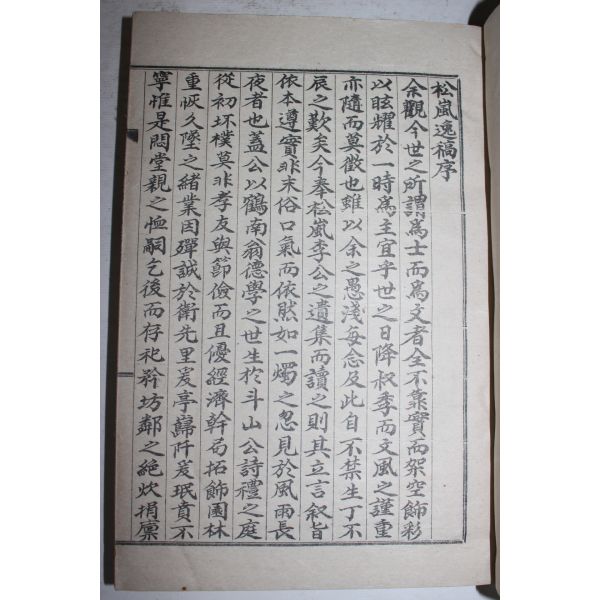 松嵐逸稿序
余觀今世之所謂爲士而爲文者全不靠實而架空飾彩
以眩耀於一時爲主宜乎世之日降叔季而文風之謹重
亦隨而莫徵也雖以余之愚淺每念及此自不禁生丁不
辰之歎矣今奉松嵐李公之遺集而讀之則其立言叙旨
依本遵實非末俗口氣而依然如一燭之忽見於風雨長
夜者也盖公以鶴南翁德學之世生於斗山公詩禮之庭
從初坏樸莫非孝友與節儉而且優經濟幹局拓飾園林
重恢久墜之緖業因殫誠於衛先里爰亭巋阡爰珉賁不
寧惟是悶堂親之恤嗣乞後而存祀矜坊鄰之絶炊捐廩